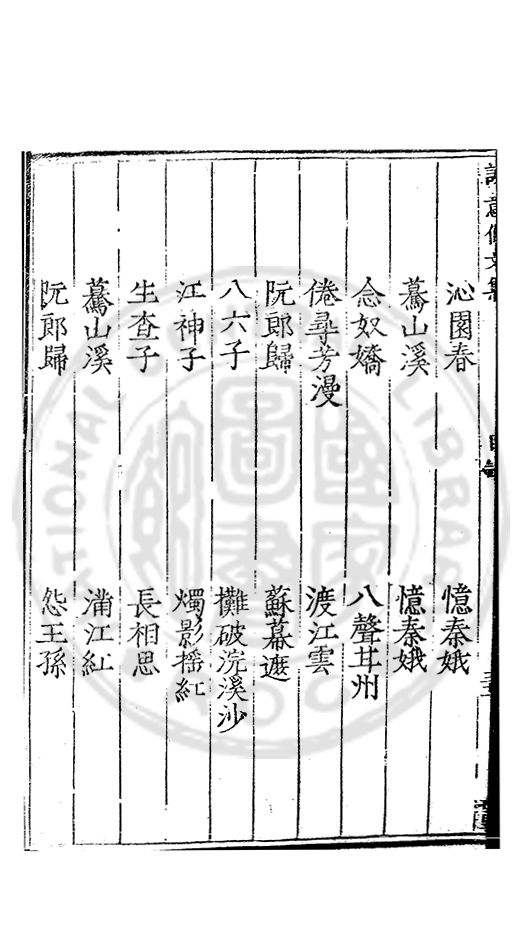 沁園春　憶秦娥
驀山溪　憶秦娥
念奴嬌　八聲甘州
倦尋芳漫　渡江雲
阮郎歸　蘇幕遮
八六子　攤破浣溪沙
江神子　燭影摇紅
生查子　長相思
驀山溪　滿江紅
阮郎歸　怨王孫